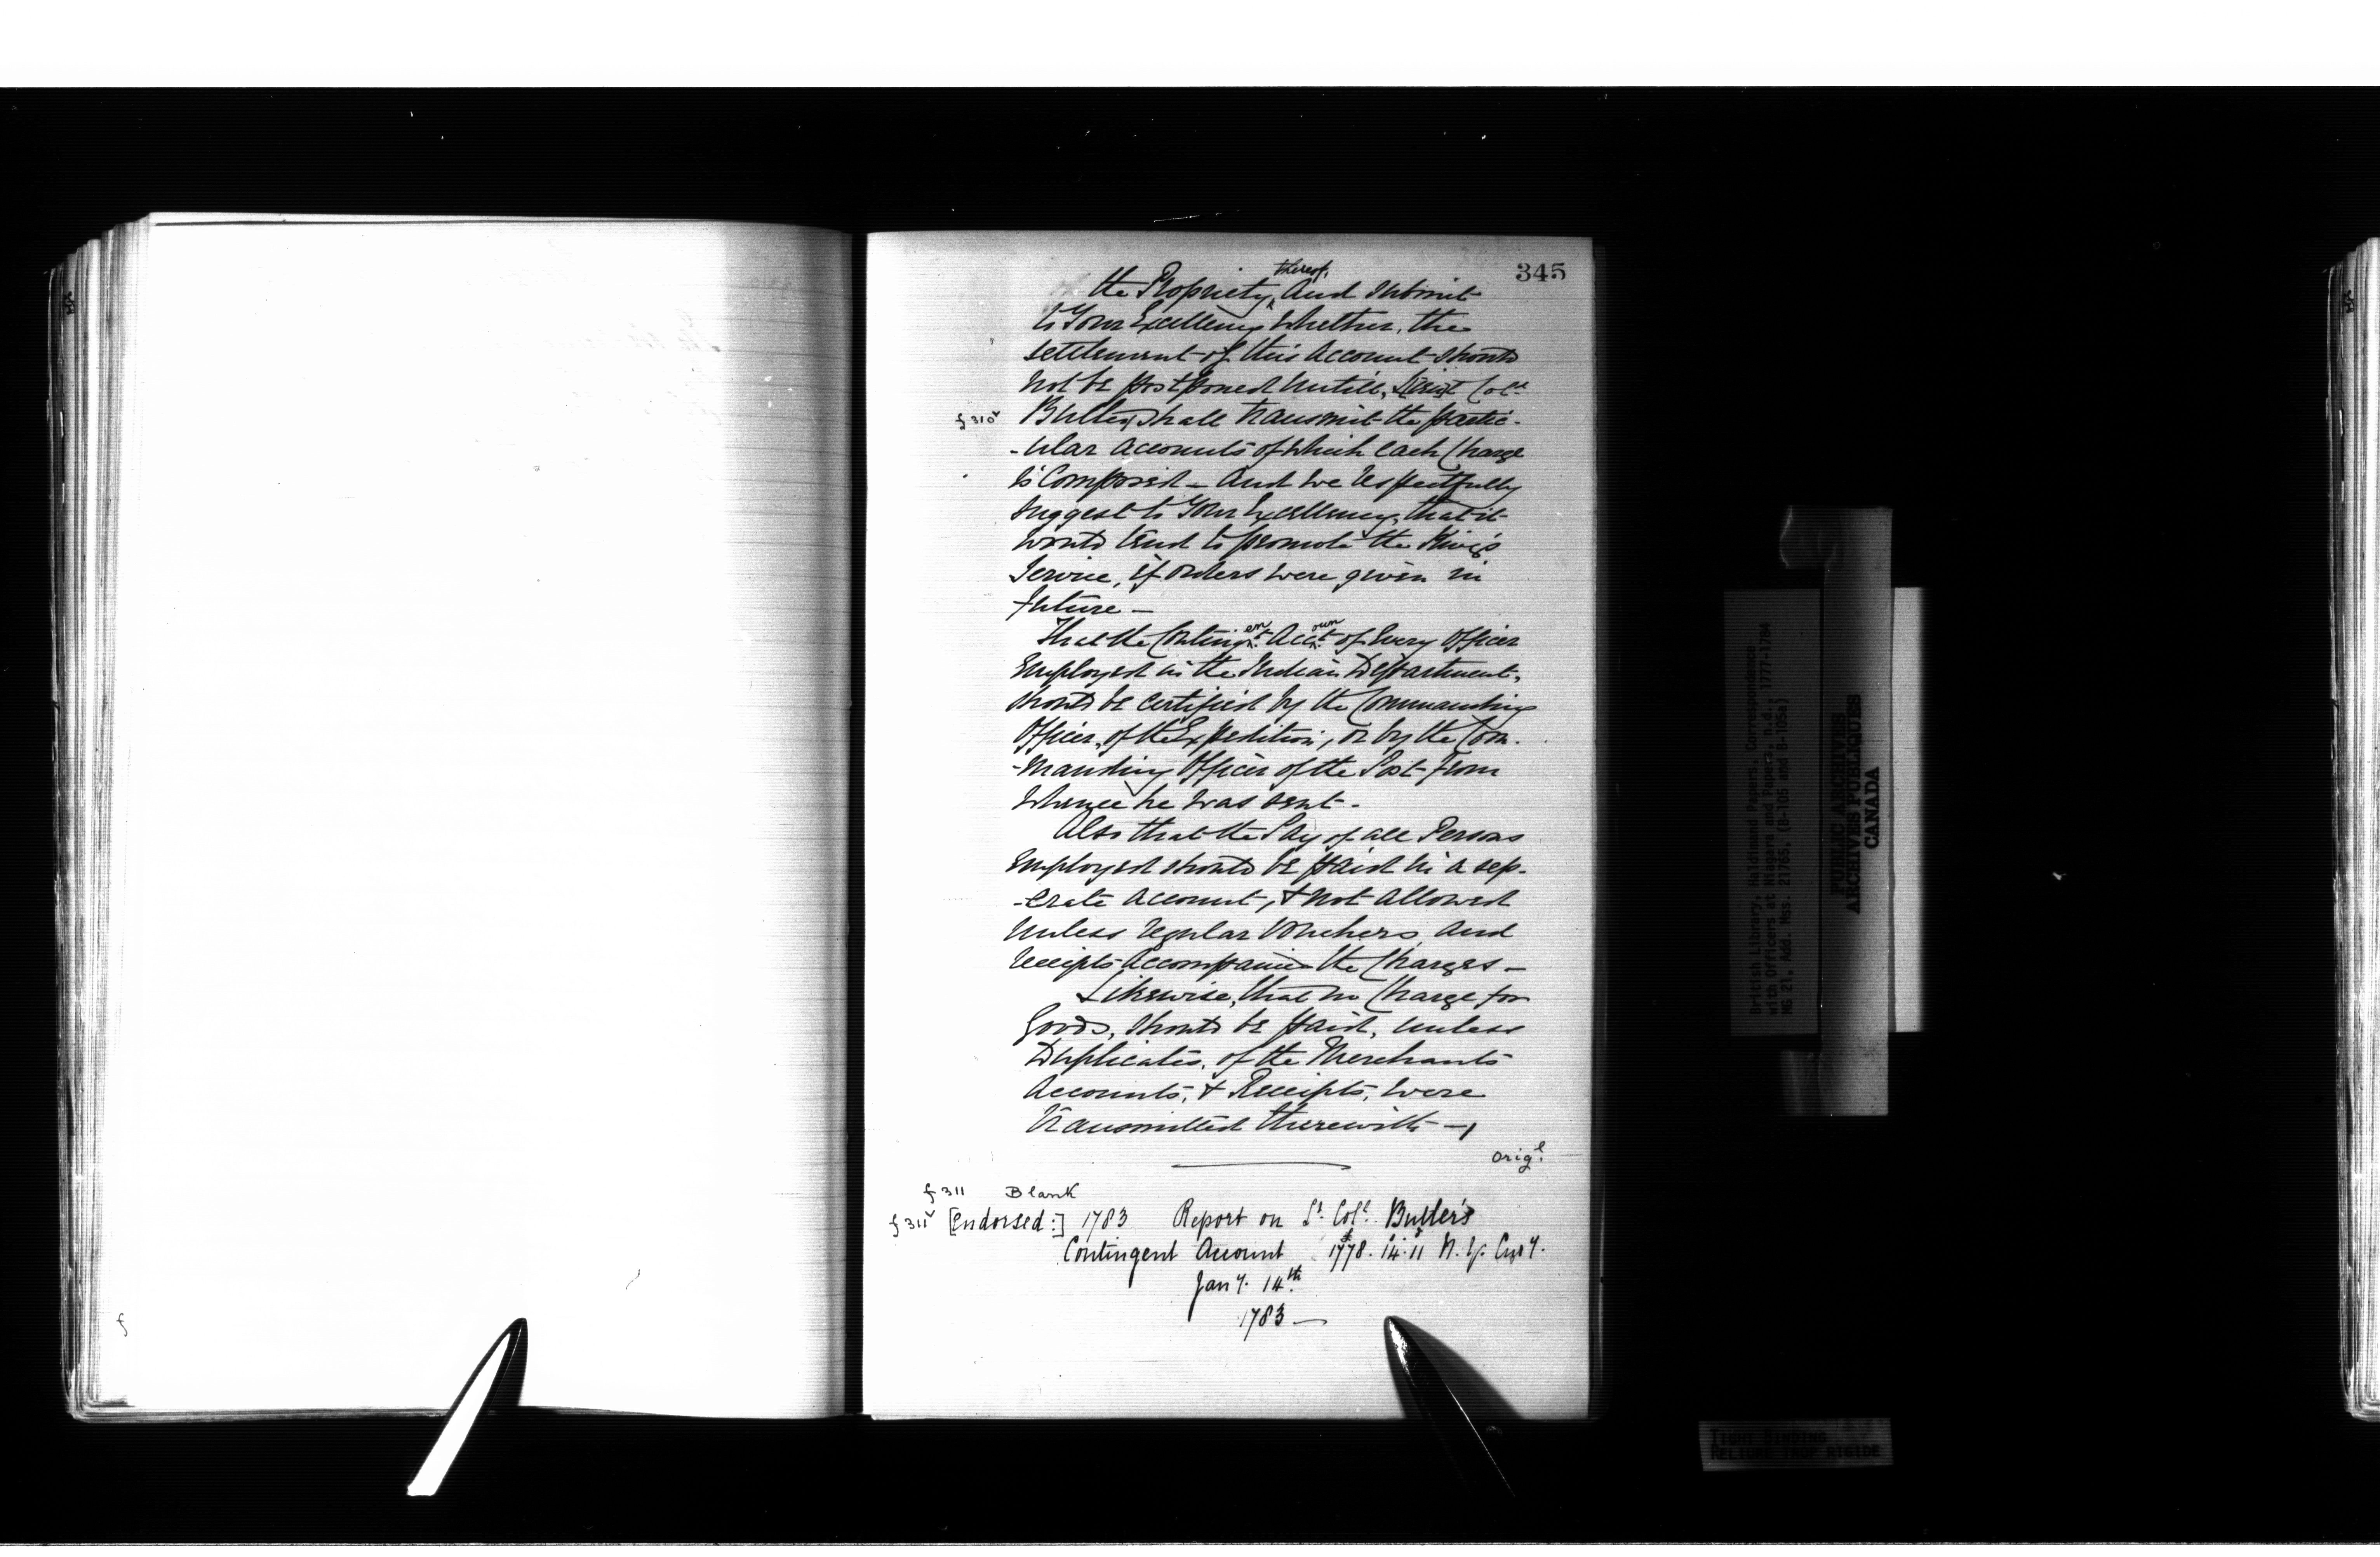 345
the Propriety thereof, And Submit
to Your Excellency Whether, the
settlement of this Account should
not be postponed Untill, Lieut Coll
f 310v Butler, shall transmit the partic-
-ular accounts of which each Charge
is Composed - And we Respectfully
suggest to Your Excellency, that it
would tend to promote the King's
Service, if orders were given in
future -
That the Contingent Account of Every Officer
Employed in the Indian Department,
should be certified by the Commanding
Officer, of the Expedition, or by the Com-
-manding Officer of the Post from
whence he was sent -
Also that the Pay of all Persons
Employed should be paid in a sep-
-erate account, & not allowed
Unless regular Vouchers and
receipts Accompanied the Charges -
Likewise, that no Charge for
Goods, should be paid, unless
Duplicates, of the Merchants
Accounts, & Receipts, were
transmitted therewith -
origl.
f 311 Blank
f 311v [Endorsed:] 1783 Report on Lt. Coll. Butler's
Contingent Account 1778. 14. 11 N. Y. Cury.
Jany. 14th.
1783 -
British Library, Haldimand Papers. Correspondence
with Officers at Niagara and Papers, n.d., 1777-1784
MG 21, Add. Mss. 21765, (B-105 and B-105a)
PUBLIC ARCHIVES
ARCHIVES PUBLIQUES
CANADA
TIGHT BINDING
RELIURE TROP RIGIDE